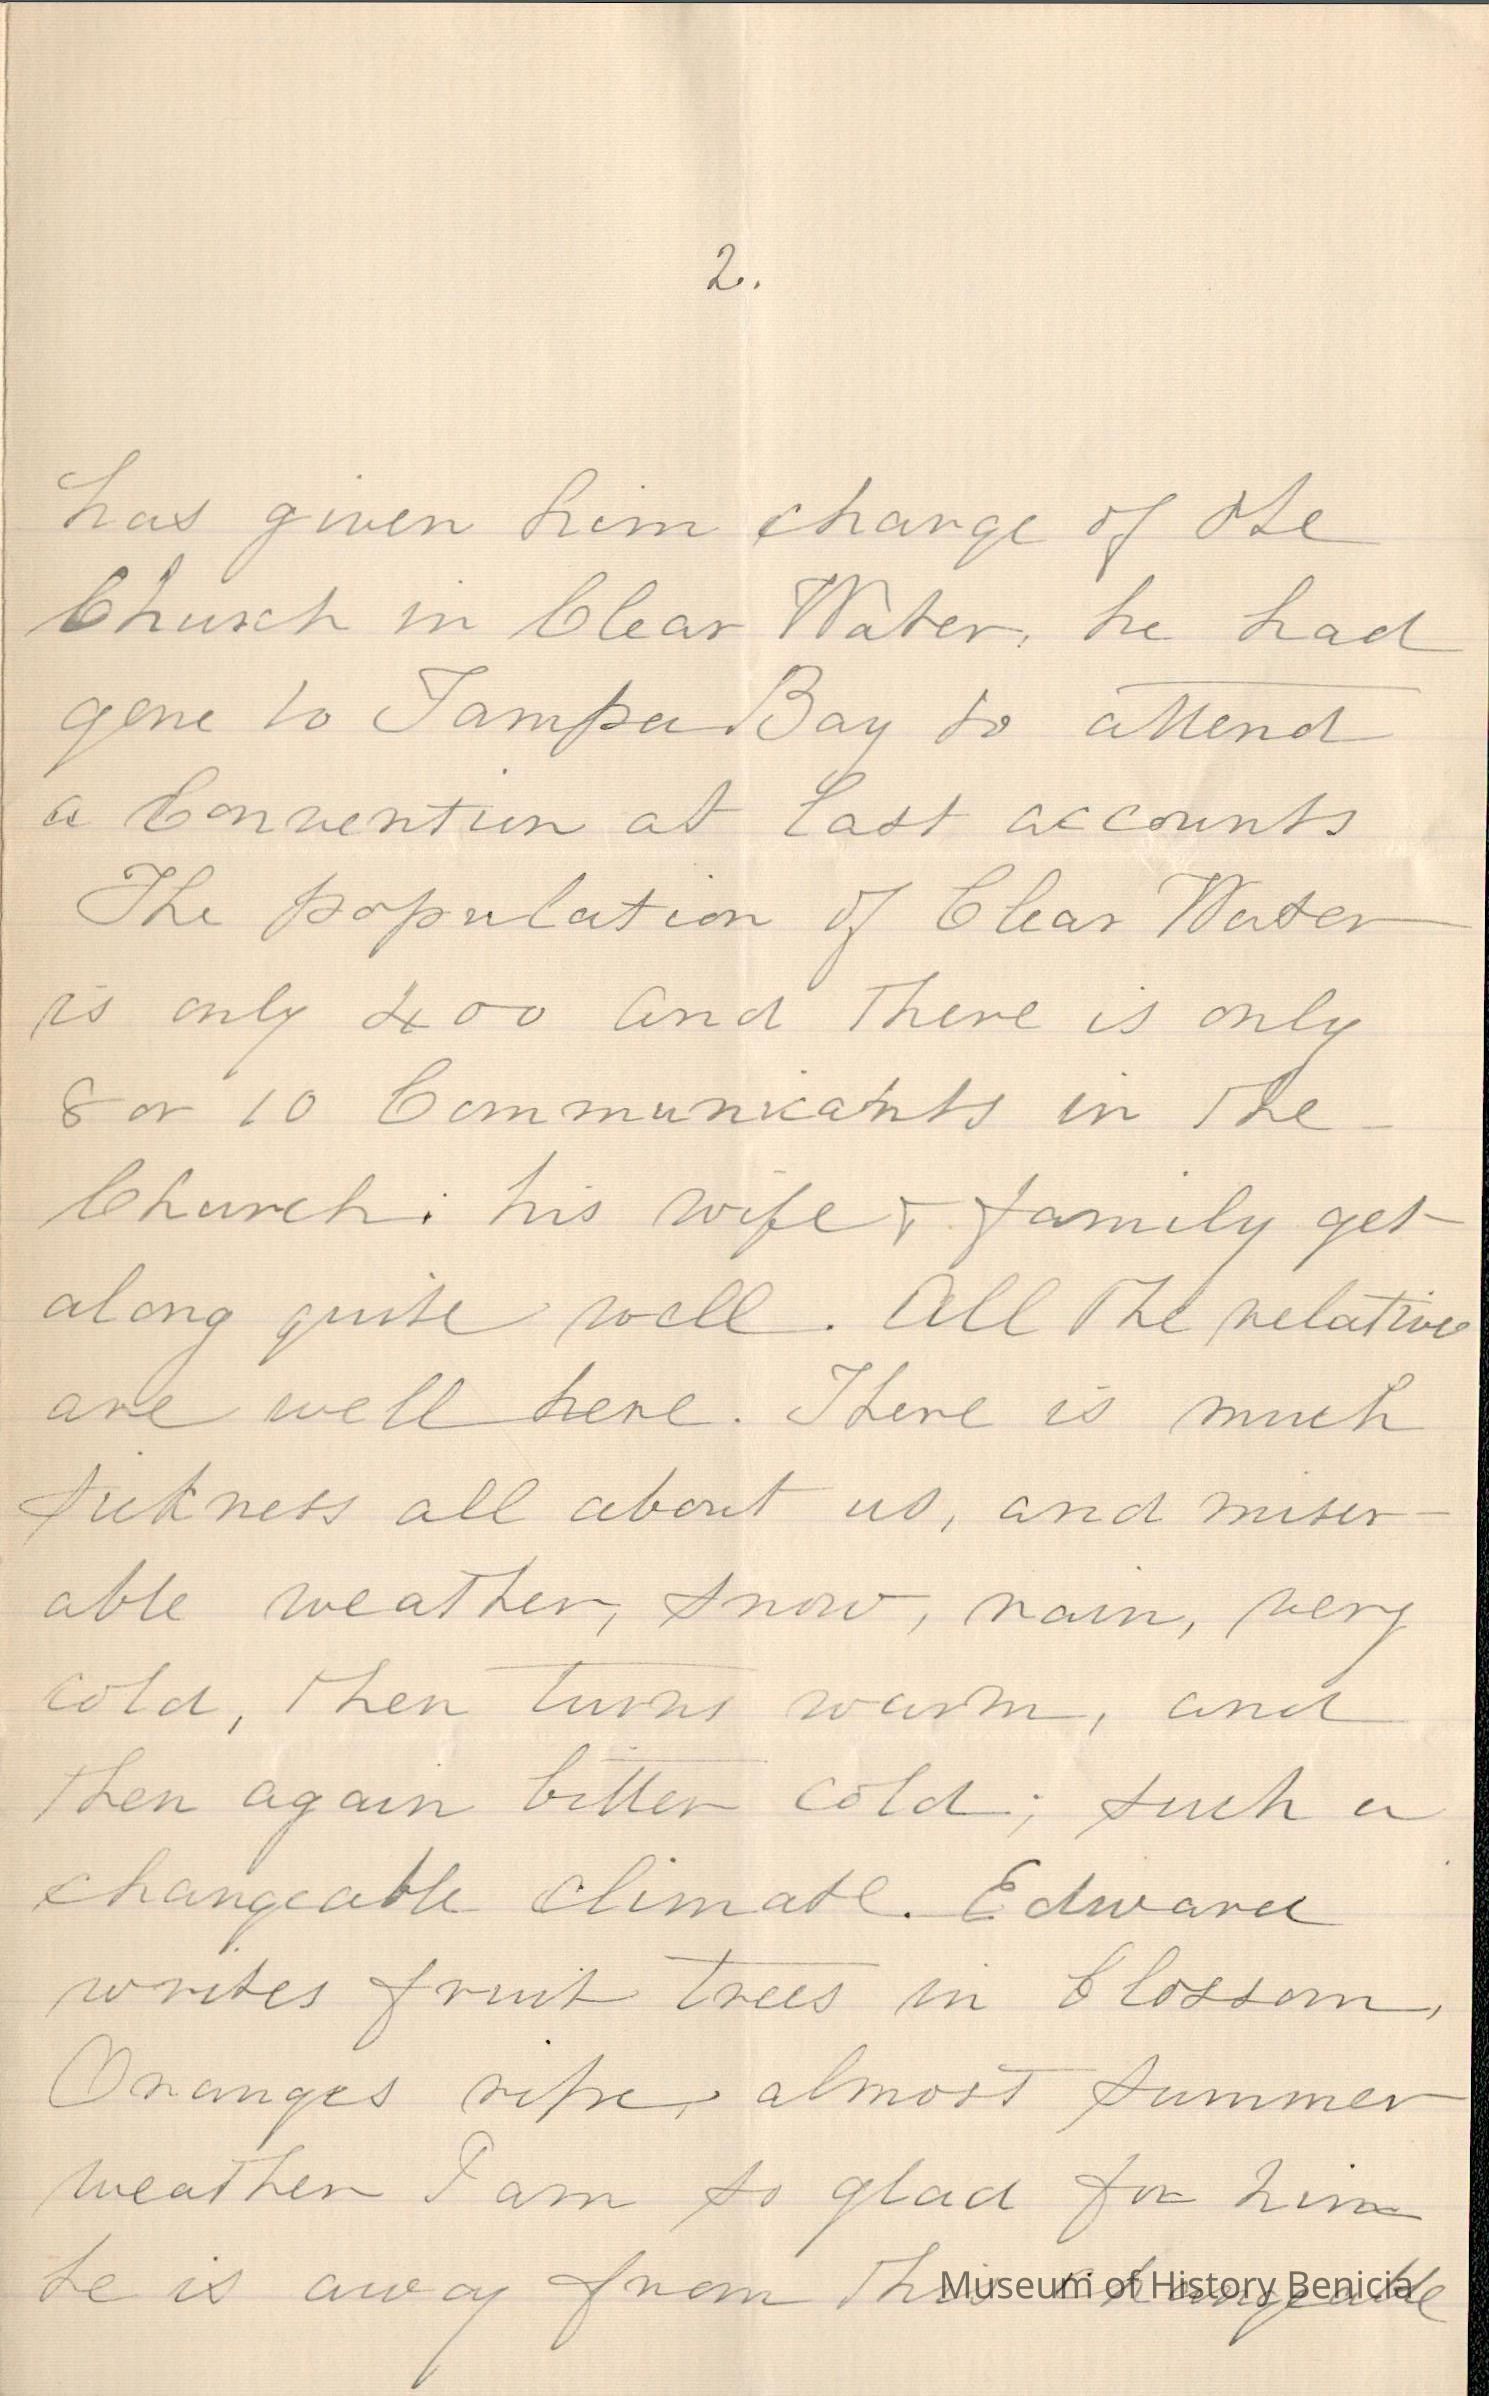 2.
has given him charge of the
Church in Clear Water, he had
gone to Tampa Bay to attend
a Convention at last accounts
The population of Clear Water
is only 400 and there is only
8 or 10 Communicants in the
Church; his wife & family get
along quite well. All the relatives
are well here. There is much
sickness all about us, and miser-
able weather, snow, rain, very
cold, then turns warm, and
then again bitter cold; such a
changeable climate. Edward
writes fruit trees in blossom,
Oranges ripe, almost summer
weather I am so glad for him
he is away from this changeable
Museum of History Benicia